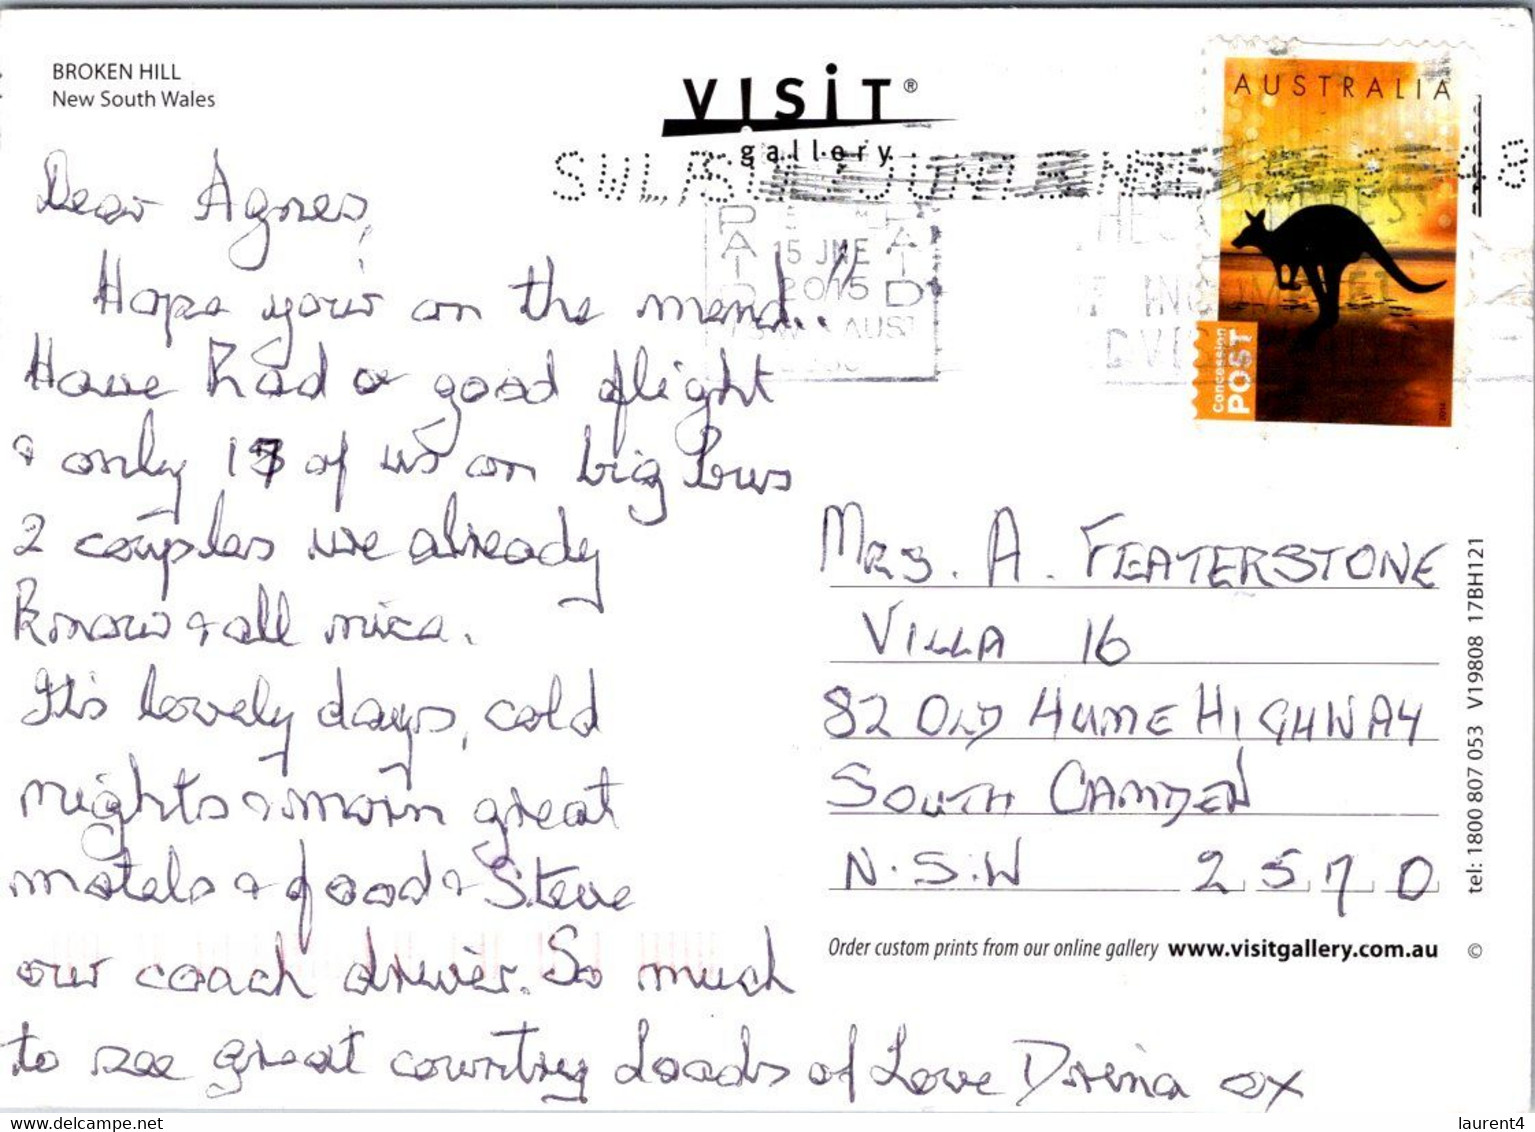 BROKEN HILL
New South Wales
VISIT®
gallery
AUSTRALIA
Concession
POST
PAID
15 JNE
2015
PAID
AUST
Dear Agnes,
Hope your on the mend!!
Have had a good flight
& only 17 of us on big bus
2 couples we already
know & all nice.
It's lovely days, cold
nights & morn great
motels & food & Steve
our coach driver. So much
to see great country Loads of Love Drina ox
MRS. A. FEATERSTONE
VILLA 16
82 OLD HUME HIGHWAY
SOUTH CAMDEN
N.S.W 2570
Order custom prints from our online gallery www.visitgallery.com.au ©
tel: 1800 807 053 V19808 17BH121
www.delcampe.net
laurent4